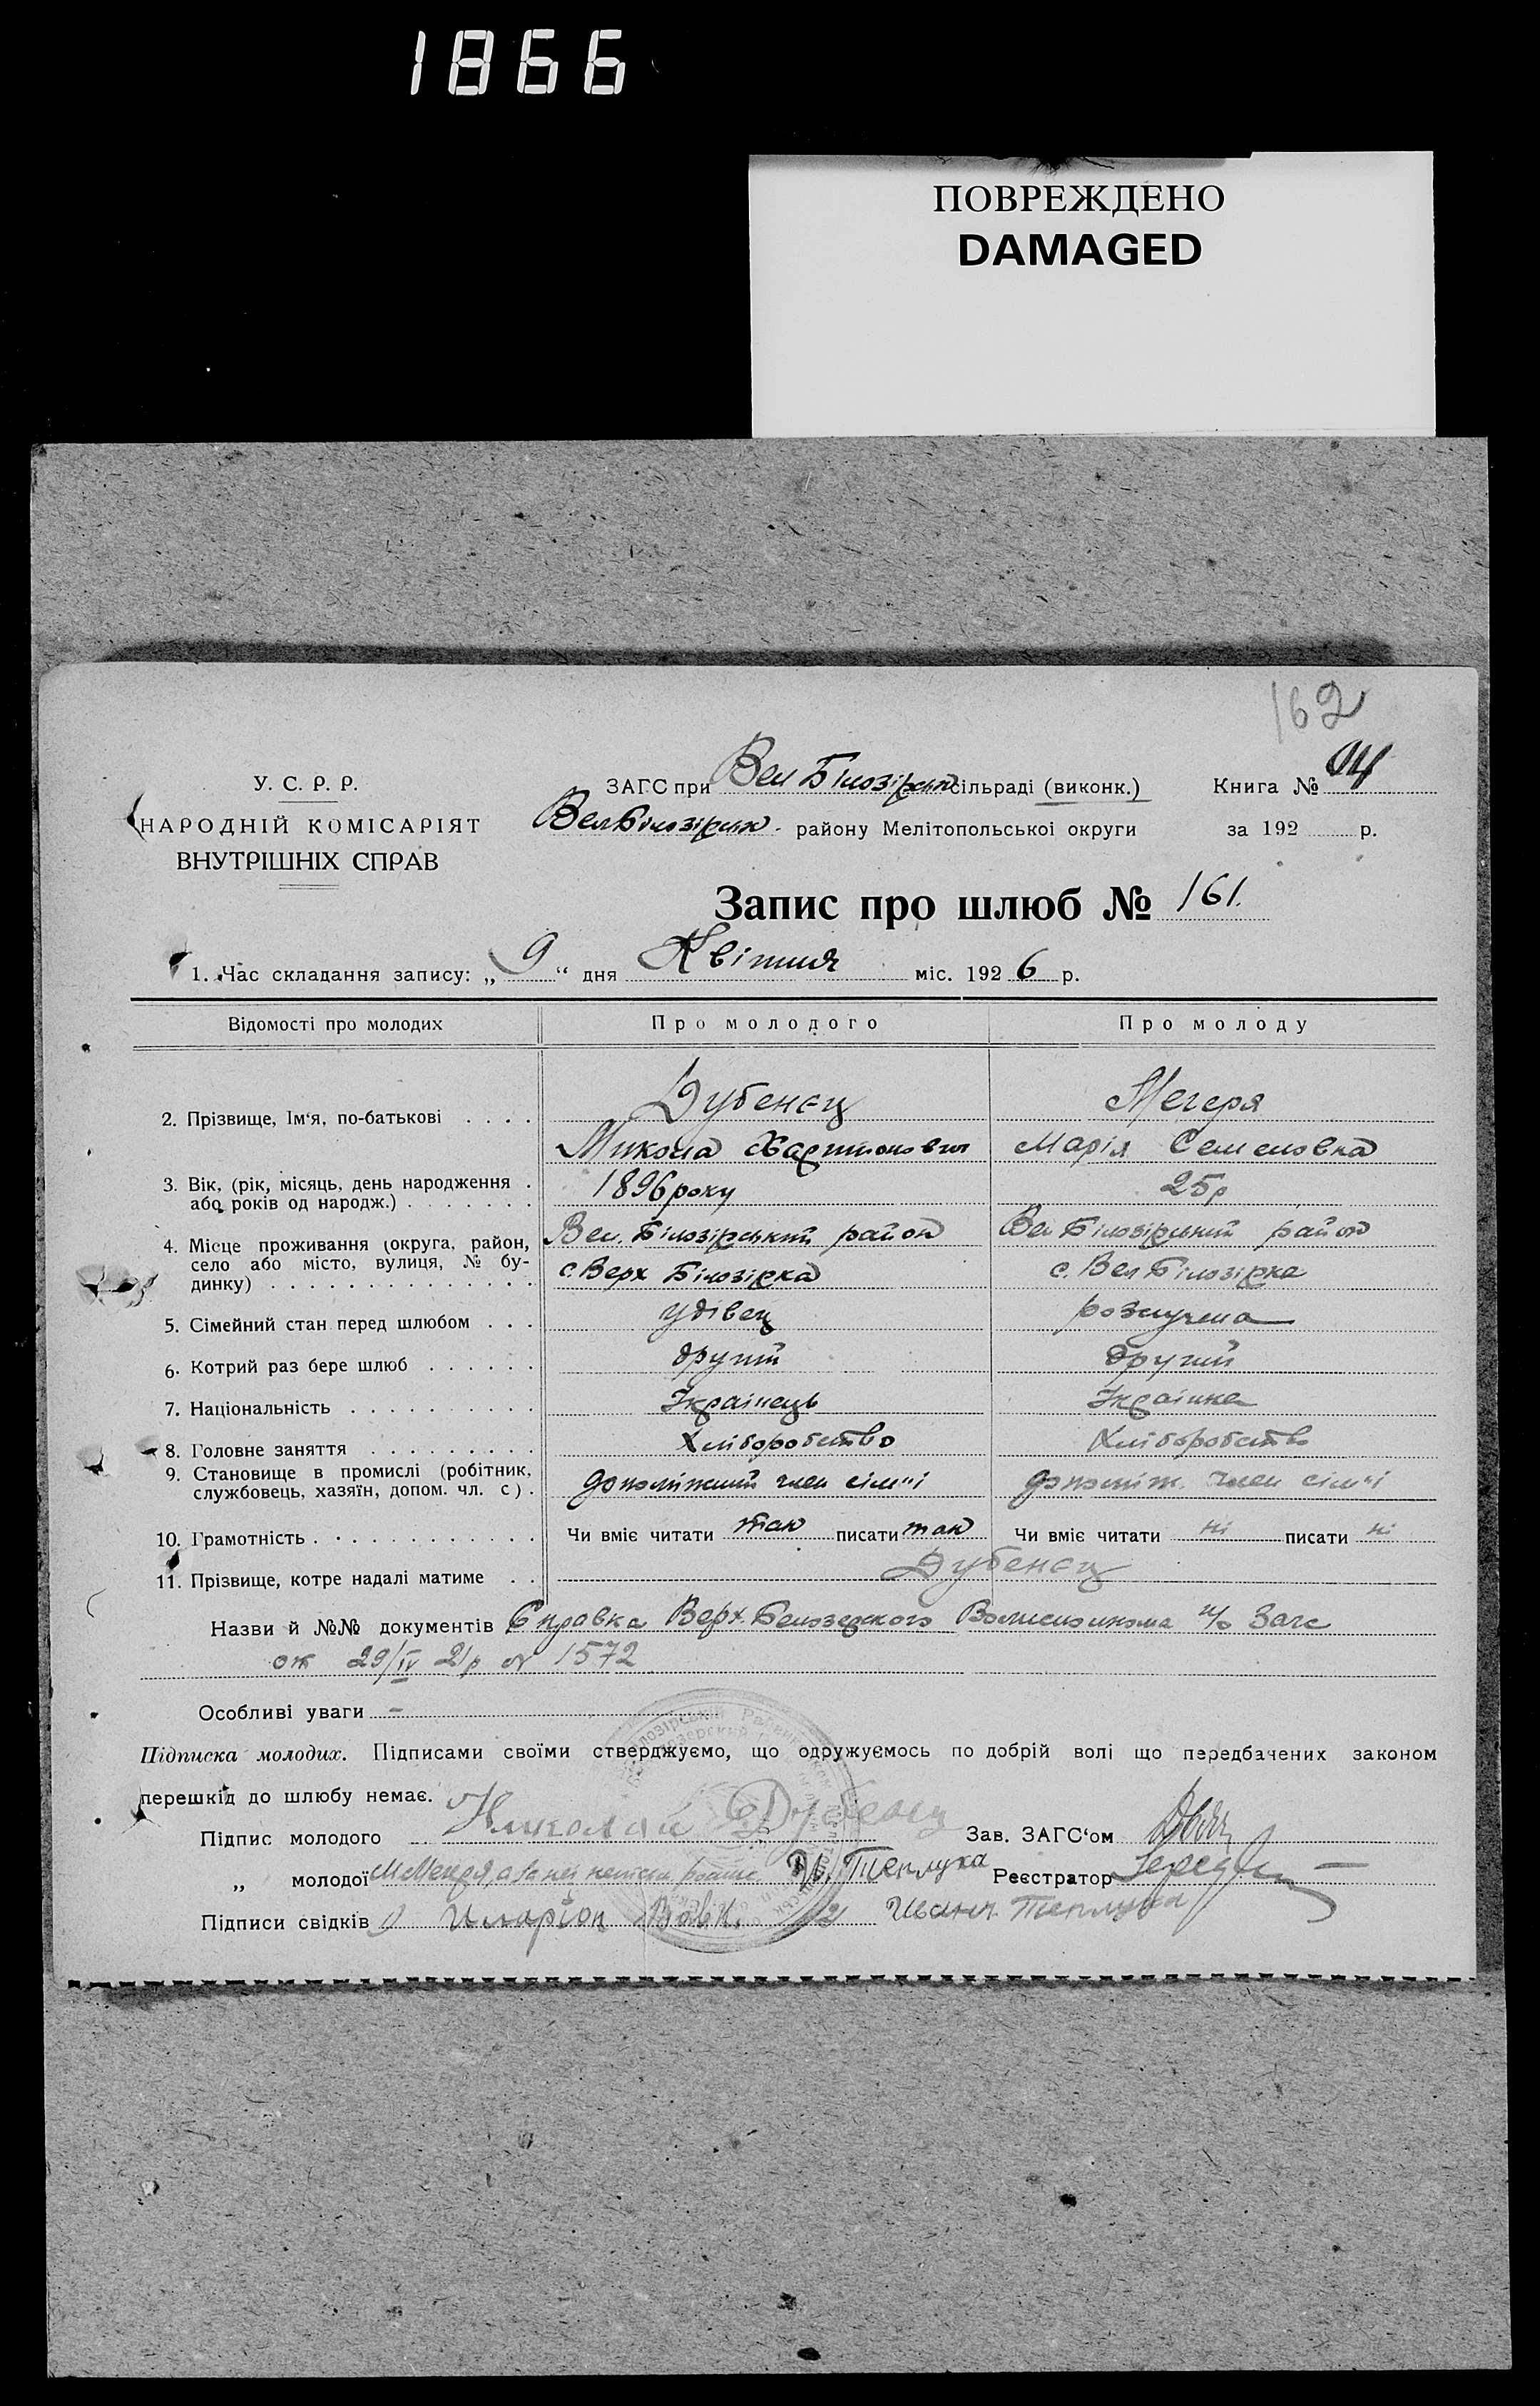 1866
ПОВРЕЖДЕНО
DAMAGED
162
У. С. Р. Р.
НАРОДНІЙ КОМІСАРІЯТ
ВНУТРІШНІХ СПРАВ
ЗАГС при Вел Білозірськ сільраді (виконк.)
Вел Білозірськ. району Мелітопольської округи
Книга №
за 192 р.
Запис про шлюб № 161.
1. Час складання запису: „ 9 “ дня Квітня міс. 192 6 р.
Відомості про молодих Про молодого Про молоду
2. Прізвище, Ім‘я, по-батькові . . . . Дубенец Мегеря
Микола Харитонович Марія Семеновна
3. Вік, (рік, місяць, день народження . 1896 року 25 р
або років од народж.) . . . . . . .
4. Місце проживання (округа, район, Вел. Білозірський район Вел Білозірський район
село або місто, вулиця, № бу- с. Верх Білозірка с. Вел Білозірка
динку) . . . . . . . . . . . . . .
5. Сімейний стан перед шлюбом . . . удівец розлучена
6. Котрий раз бере шлюб . . . . . . другий другий
7. Національність . . . . . . . . . . Українець Українка
8. Головне заняття . . . . . . . . . Хліборобство Хліборобство
9. Становище в промислі (робітник, допоміжний член сім"ї допоміж. член сім"ї
службовець, хазяїн, допом. чл. с) .
10. Грамотність . . . . . . . . . . . . Чи вміє читати так писати так Чи вміє читати ні писати ні
11. Прізвище, котре надалі матиме . . Дубенец
Назви й №№ документів Справка Верх. Белозерского п/о Загс
от 29/IV 21 р № 1572
Особливі уваги –
Підписка молодих. Підписами своїми стверджуємо, що одружуємось по добрій волі що передбачених законом
перешкід до шлюбу немає.
Підпис молодого Николай Дубенец Зав. ЗАГС‘ом
„ молодої М Мегеря, а за ней И. Теплуха Реєстратор
Підписи свідків 1) Иларіон 2 Иван Теплуха